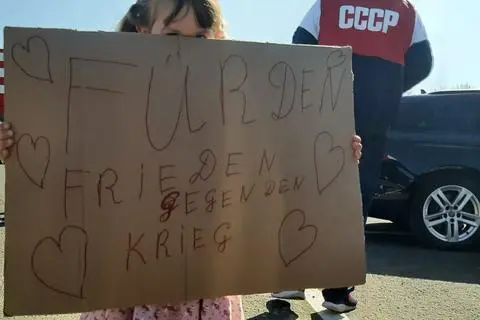 CCCP
FÜR DEN
FRIEDEN
GEGEN DEN
KRIEG